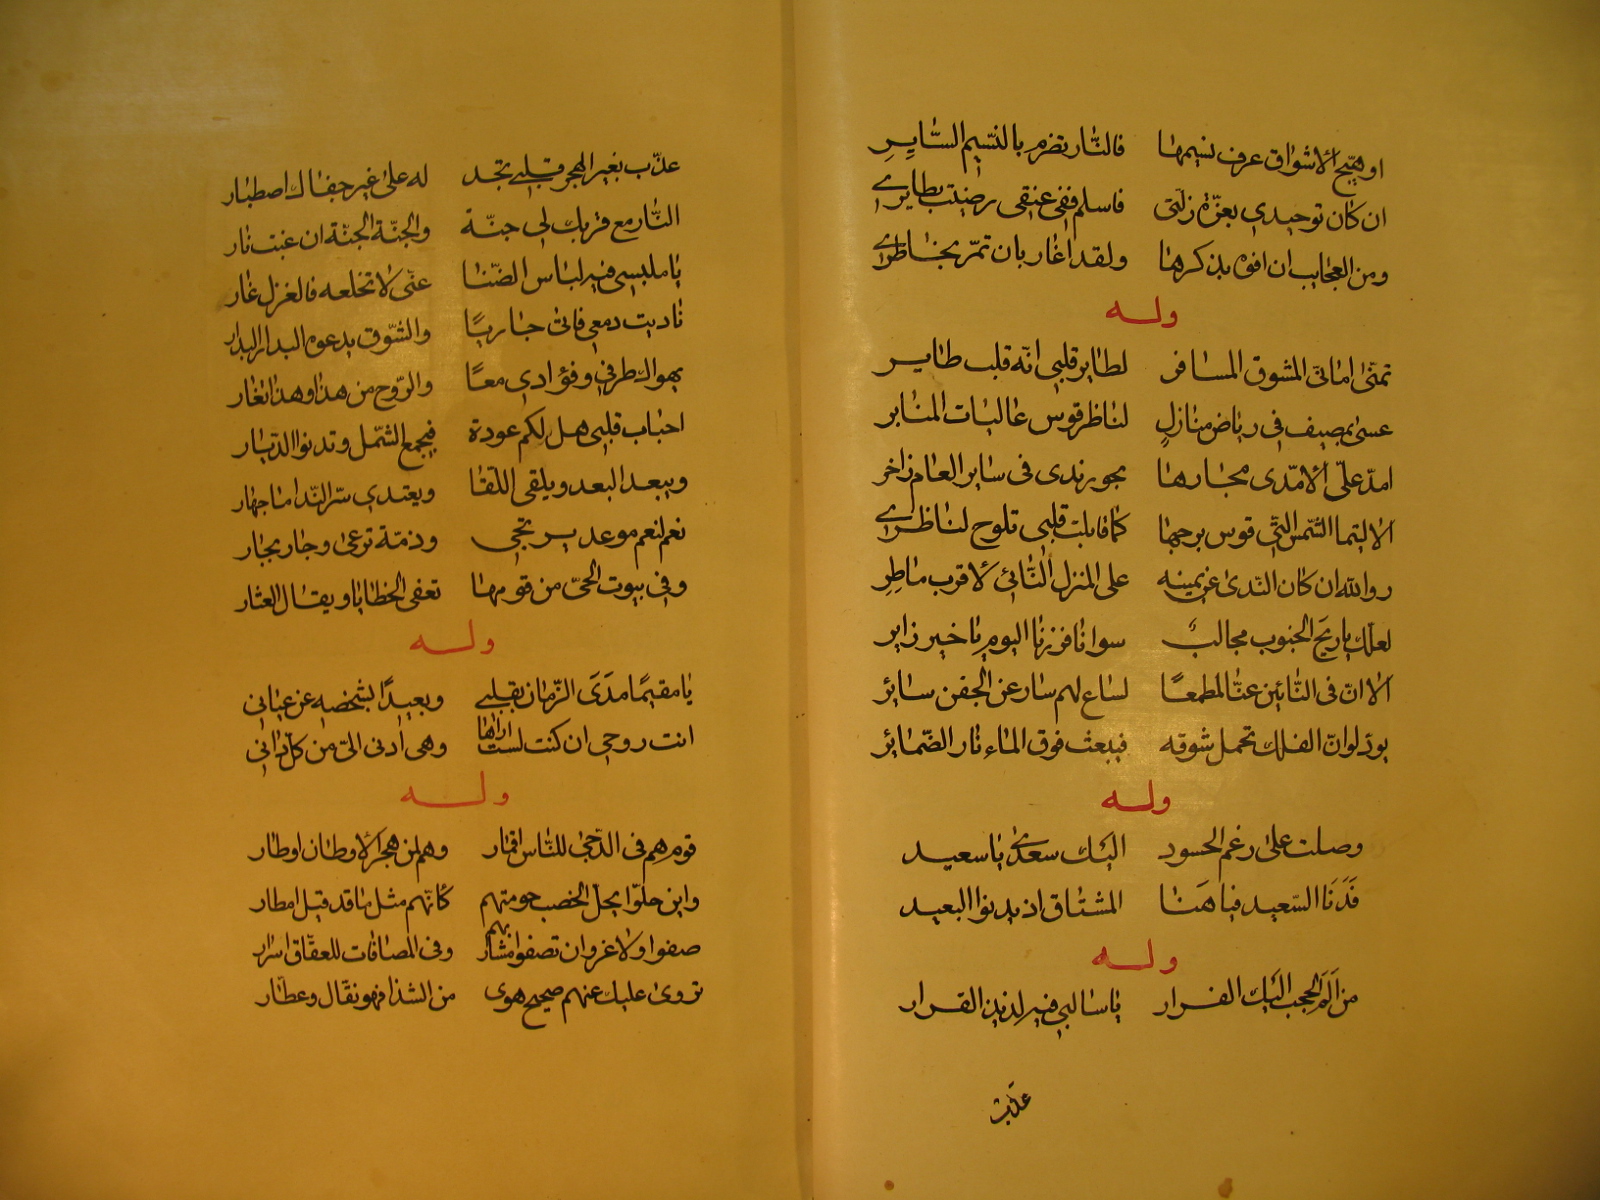 او يهيّج الاشواق عرف نسيمها فالنّار تضرم بالنّسيم السّايرِ
ان كان توحيدي بعزّة زلّتي فاسلم ففي عنقي رضيت بطايري
ومن العجايب ان افوه بذكرها ولقد اغار بان تمرّ بخاطري
وله
تمنّى امانيّ المشوق المسافر لطاير قلبي انّه قلب طاير
عسى بمصيف في رياض منازلٍ لناظر قوس عاليات المنابر
امدّ على الامدى مجارها بجور ندى في ساير العام زاخر
الا ليتما الشّمس الّتي قوس برجها كما قابلت قلبي تلوح لناظري
روالله ان كان النّدى عن يمينه على المنزل النّائي لاقرب ماطرِ
لعلّك يا ريح الجنوب مجالبٌ سوانا فزرنا اليوم يا خير زاير
الا انّ في النّائين عنّا لمطمعًا لساع لهم سار عن الجفن سائر
بودّ لو انّ الفلك تحمل شوقه فيبعث فوق الماء نار الضّمائر
وله
وصلت على رغم الحسود اليك سعدى يا سعيد
فَدَنَا السّعيد فيا هَنَا المشتاق اذ يدنوا البعيد
وله
من اَلَم الحجب اليك الفرار يا سالبي فيه لذيذ القرار
عذّب
عذّب بغير الهجر قلبي تجد له على غير جفاك اصطبار
النّار مع قربك لي جنّة والجنّة الجنّة ان غبت نار
يا ملبسي فيه لباس الضّنا عنّي لا تخلعه فالغزل غار
ناديت دمعي فاتى جاريًا والشّوق يدعوه البدار البدار
يهواك طرفي وفؤادي معًا والرّوح من هذا وهذا تغار
احباب قلبي هل لكم عودة فيجمع الشّمل وتدنوا الدّيار
ويبعد البعد ويلقى اللّقا ويغتدي سرّ النّداما جهار
نعم لنعم موعد يرتجى وذمّة ترعى وجار يجار
وفي بيوت الحيّ من قومها تعفى الخطايا ويقال العثار
وله
يا مقيمًا مدَى الزّمان بقلبي وبعيدًا بشخصه عن عياني
انت روحي ان كنت لست اراها وهي أدنى اليّ من كلّ داني
وله
قوم هم في الدّجى للنّاس اقمار وهم لمن هجر الاوطان اوطار
واين حلّوا يحلّ الخصب حومتهم كانّهم مثل ما قد قيل امطار
صفوا ولا غرو ان تصفوا مشاربهم وفي المصافات للعقّاق اسرار
تروى عليك عنهم صحيح هوى من الشذا فهو نقّال وعطّار